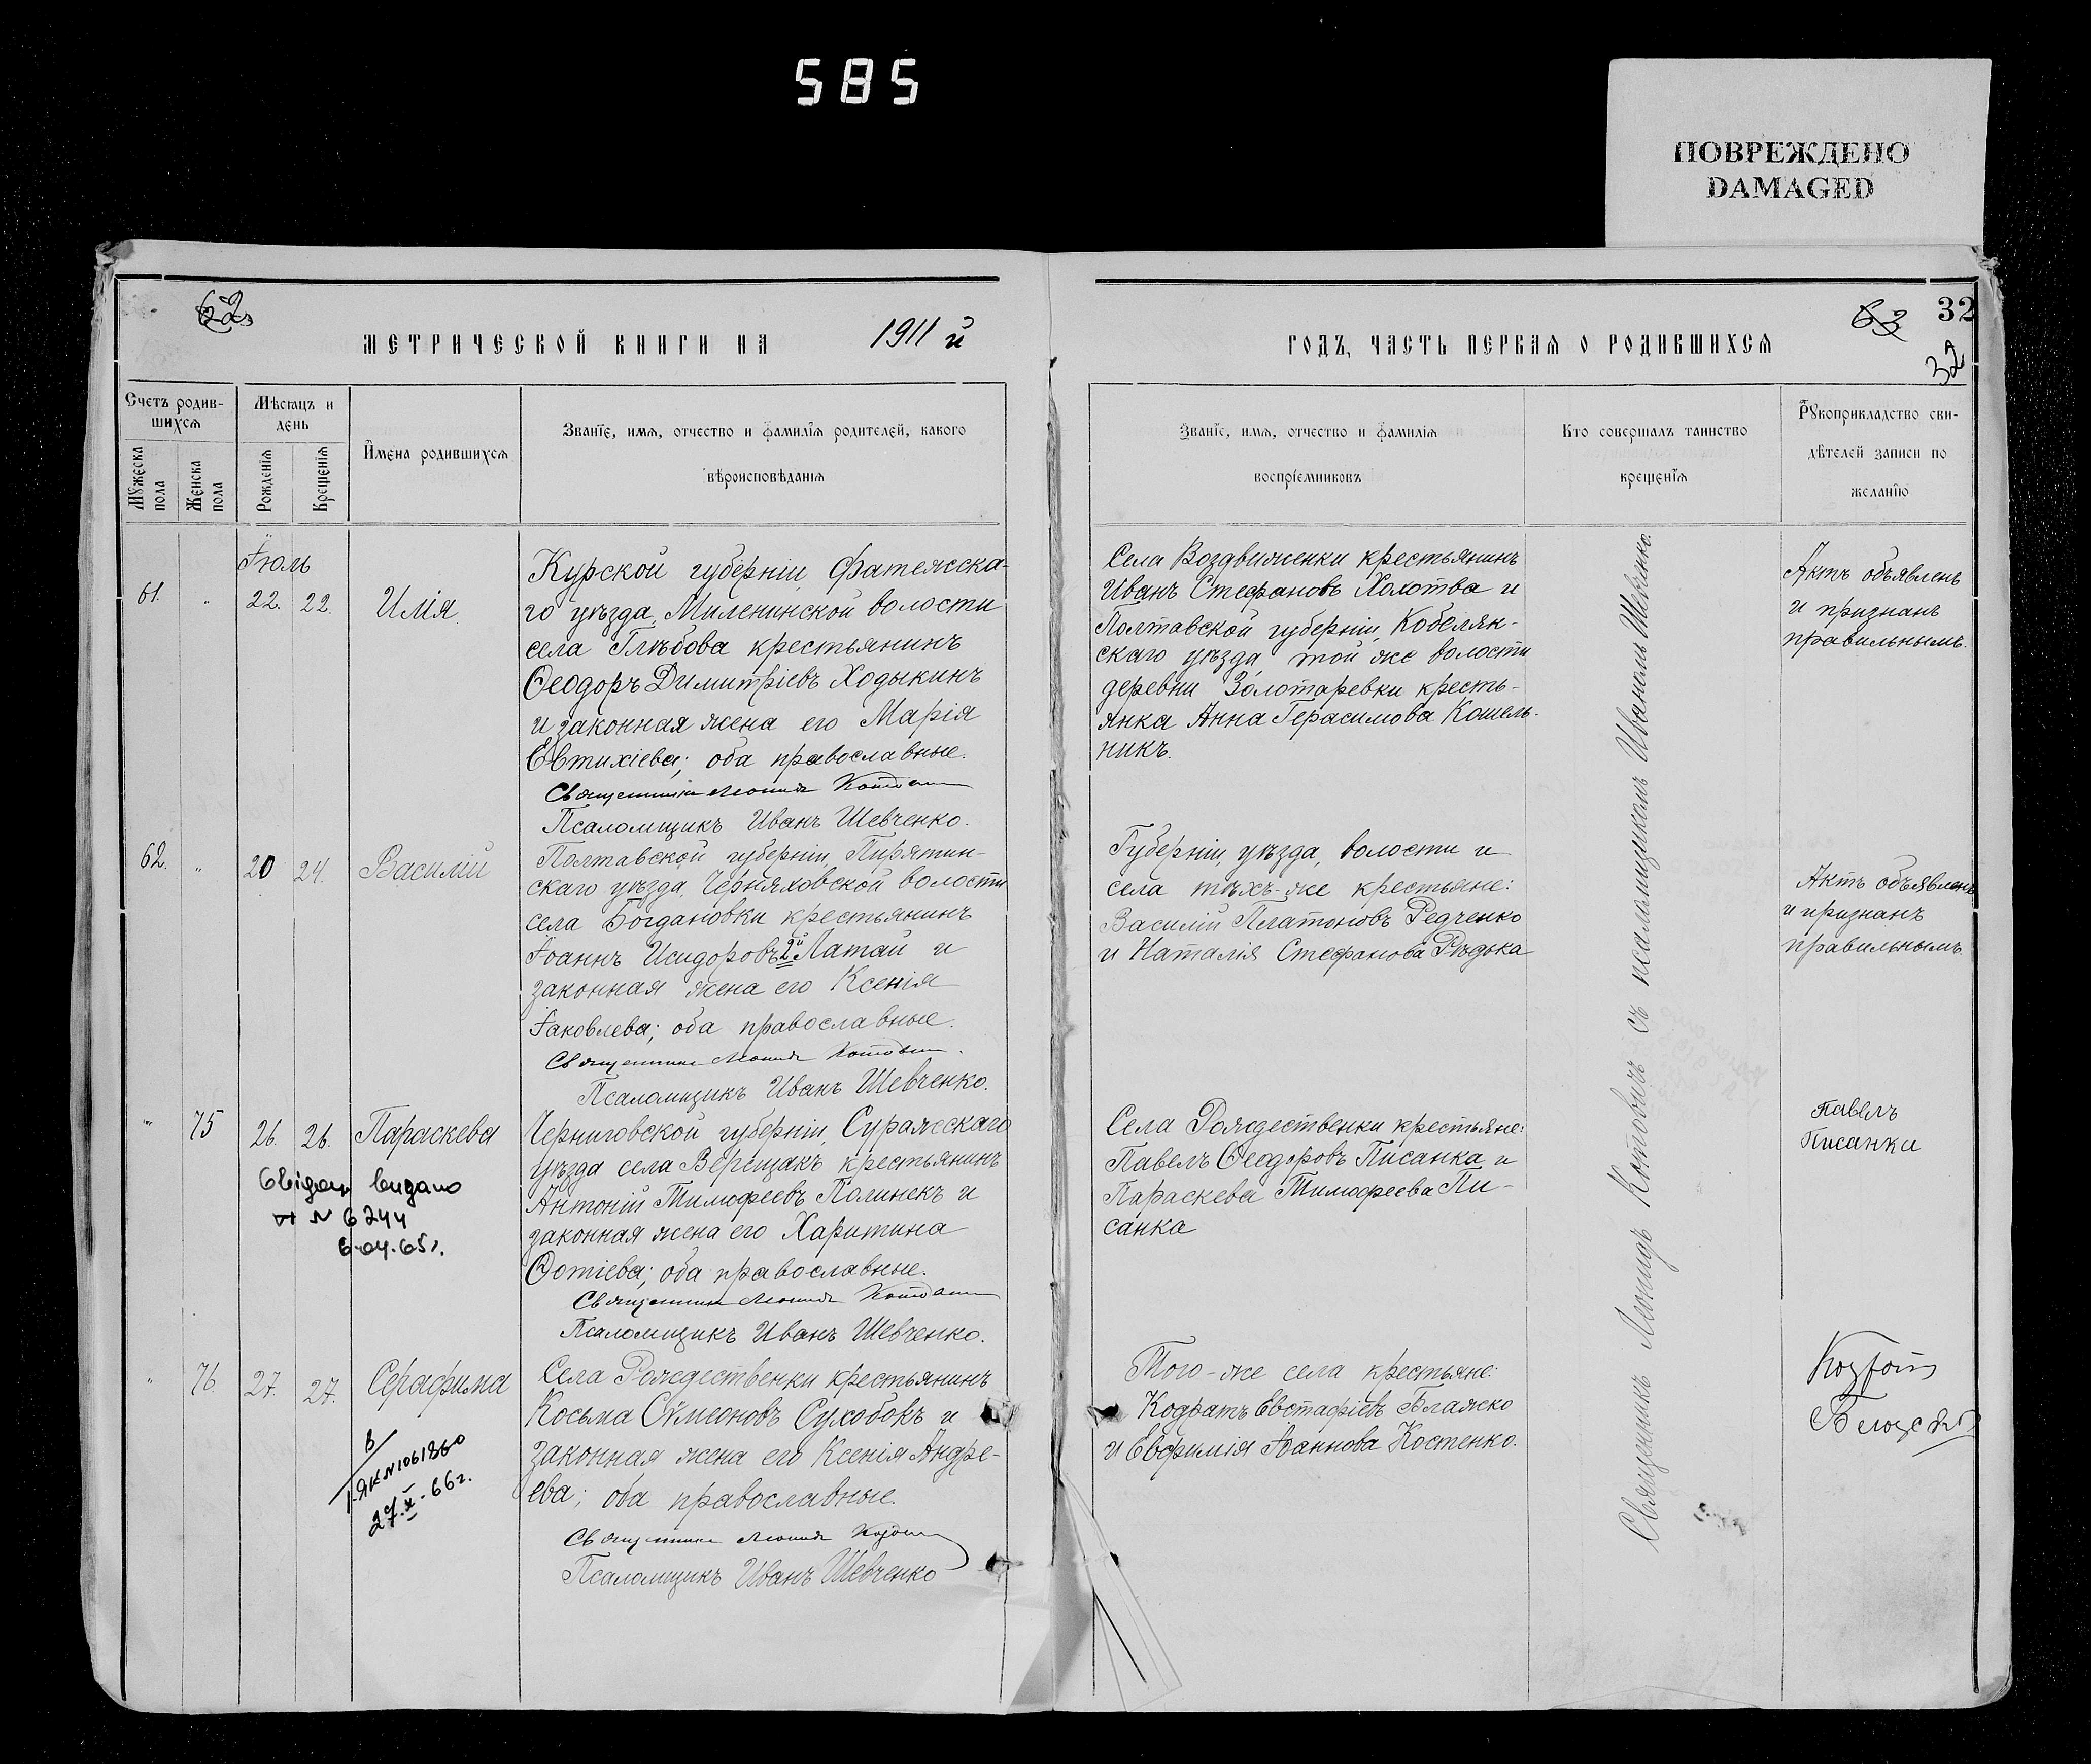 585
ПОВРЕЖДЕНО
DAMAGED
62
МЕТРИЧЕСКОЙ КНИГИ НА 1911й
ГОДЪ, ЧАСТЬ ПЕРВАЯ О РОДИВШИХСЯ
63
32
32
Счетъ родив-
шихся
Мужеска пола
Женска пола
Мѣсяцъ и
день
Рожденія
Крещенія
Имена родившихся
Званіе, имя, отчество и фамилія родителей, какого
вѣроисповѣданія
Званіе, имя, отчество и фамилія
воспріемниковъ
Кто совершалъ таинство
крещенія
Рукоприкладство сви-
дѣтелей записи по
желанію
Іюль
61. " 22. 22. Илія.
Курской губерніи, Фатежска-
го уѣзда, Миленинской волости
села Глѣбова крестьянинъ
Ѳеодоръ Димитріевъ Ходыкинъ
и законная жена его Марія
Евтихіева; оба православные.
Священникъ Леонидъ Котович
Псаломщикъ Иванъ Шевченко.
Села Воздвиженки крестьянинъ
Иванъ Стефановъ Холотва и
Полтавской губерніи, Кобелян-
скаго уѣзда, той же волости
деревни Золотаревки кресть-
янка Анна Герасимова Кошель-
никъ.
Актъ объявленъ
и признанъ
правильнымъ.
62. " 20 24. Василій
Полтавской губерніи, Пирятин-
скаго уѣзда, Черняховской волости
села Богдановки крестьянинъ
Іоаннъ Исидоровъ 2й Латай и
законная жена его Ксенія
Іаковлева; оба православные.
Священникъ Леонидъ Котович.
Псаломщикъ Иванъ Шевченко.
Губерніи, уѣзда, волости и
села тѣхъ-же крестьяне:
Василій Платоновъ Редченко
и Наталія Стефанова Рѣдька
Актъ объявленъ
и признанъ
правильнымъ.
" 75 26. 26. Параскева
Черниговской губерніи, Суражскаго
уѣзда села Верещакъ крестьянинъ
Антоній Тимофеевъ Полинекъ и
законная жена его Харитина
Фотіева; оба православные.
Священникъ Леонидъ Котович
Псаломщикъ Иванъ Шевченко.
видано
N 6244
6-04-65г.
Села Рождественки крестьяне:
Павелъ Ѳеодоровъ Писанка и
Параскева Тимофеева Пи-
санка
Павелъ
Писанка
" 76. 27. 27. Серафима
Села Рождественки крестьянинъ
Косьма Сѵмеоновъ Сухобокъ и
законная жена его Ксенія Андре-
ева; оба православные.
Священникъ Леонидъ Котович
Псаломщикъ Иванъ Шевченко
I-ЯК N1061860
27.X-66г.
Того-же села крестьяне:
Кодратъ Евстафіевъ Блажко
и Евфимія Іоаннова Костенко.
Священникъ Леонидъ Котовичъ съ псаломщикомъ Иваномъ Шевченко.